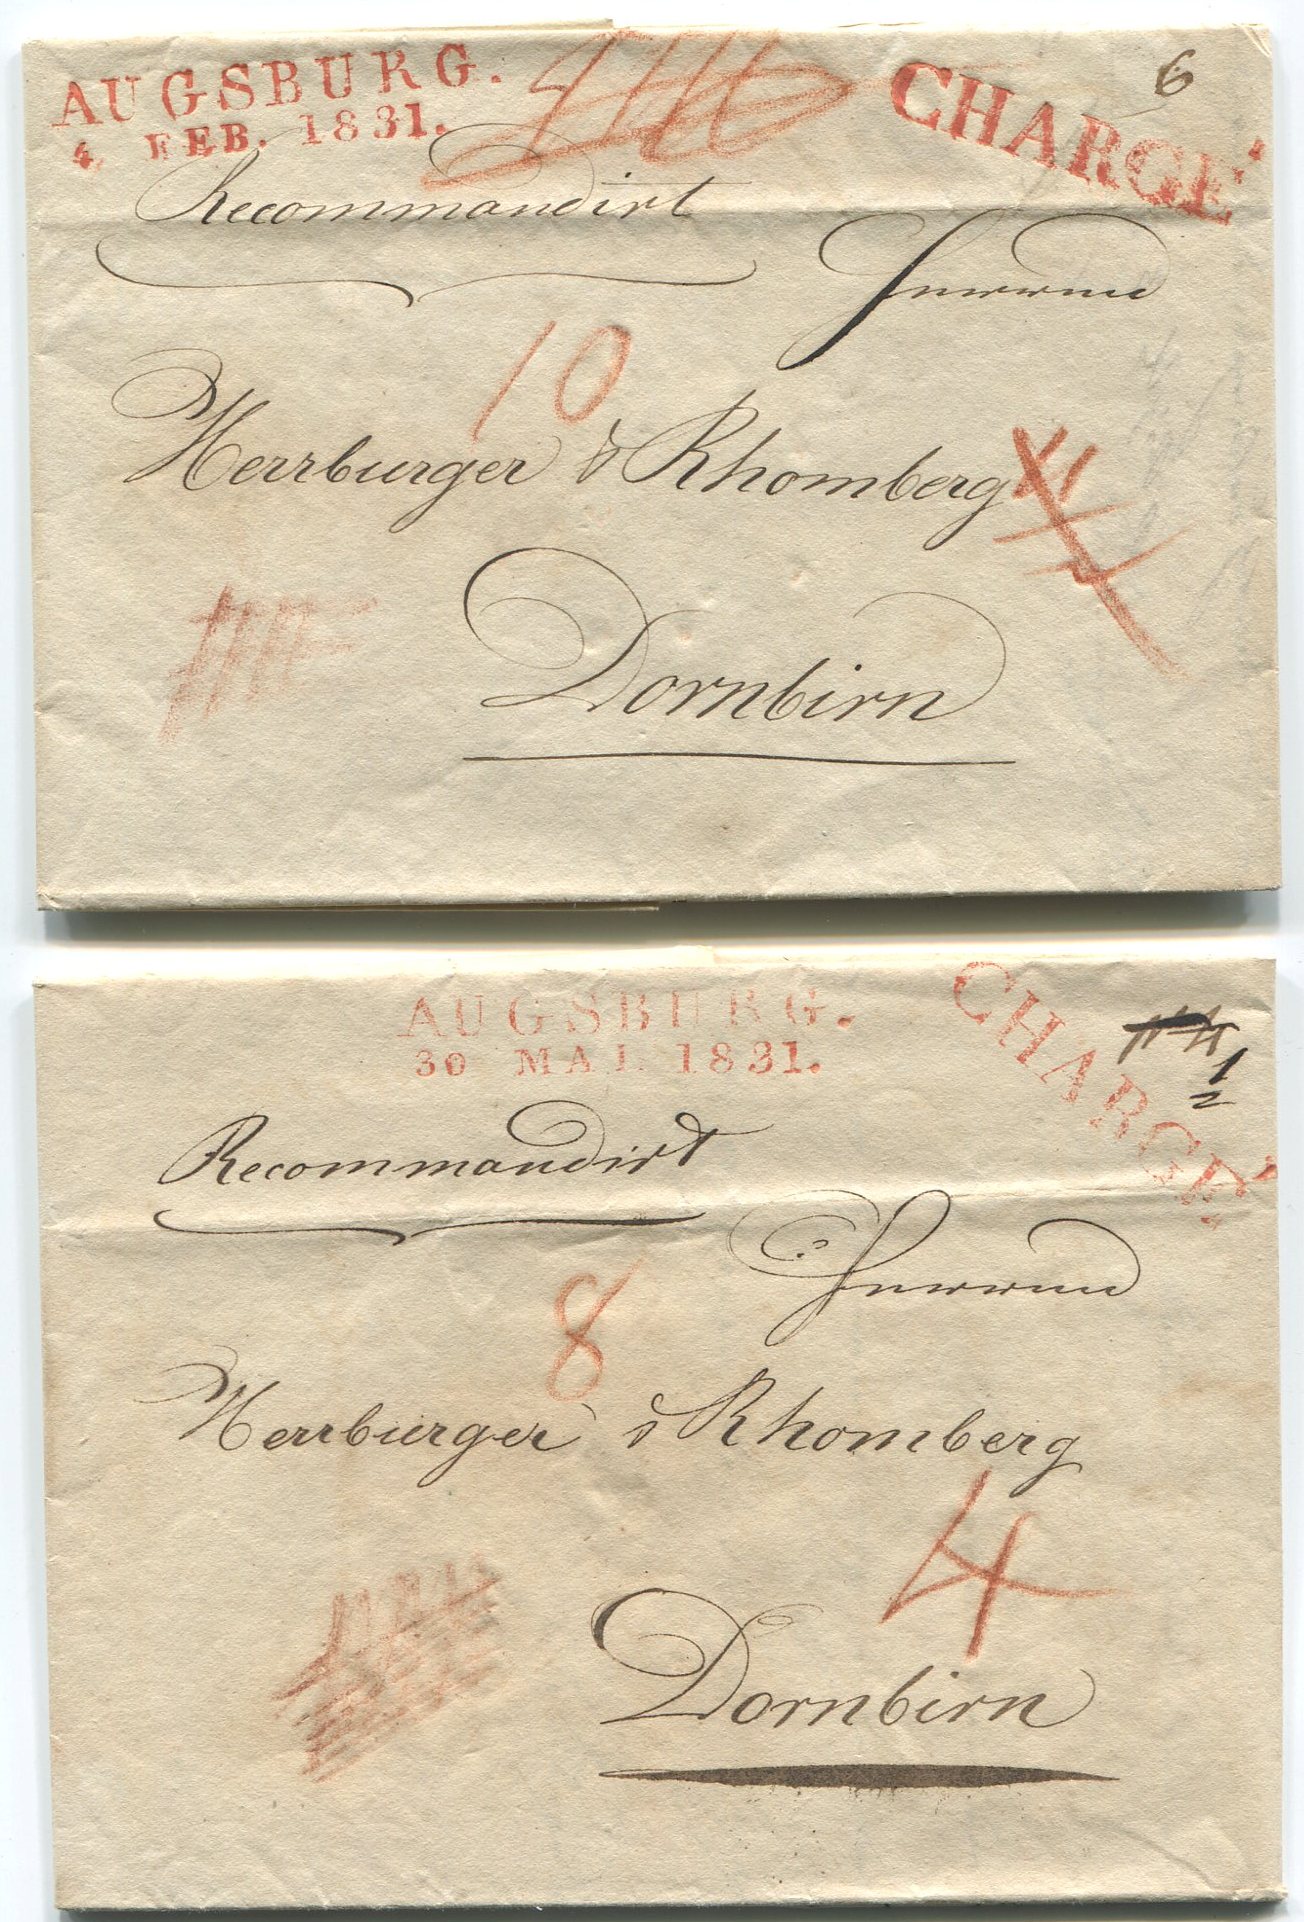 AUGSBURG.
4. FEB. 1831.
CHARGÉ
6
Recommandirt
10
Herrburger & Rhomberg
Dornbirn
AUGSBURG.
30 MAI. 1831.
CHARGÉ.
1/2
Recommandirt
8
Herrburger & Rhomberg
4
Dornbirn